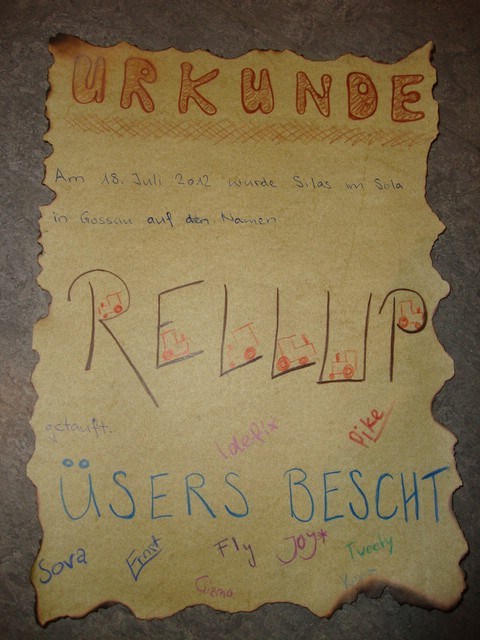 URKUNDE
Am 18. Juli 2012 wurde Silas im Sola
in Gossau auf den Namen
RELLLUP
getauft.
Idefix
Pike
ÜSERS BESCHT
Sova
Fly
Joy*
Tweety
Gizmo